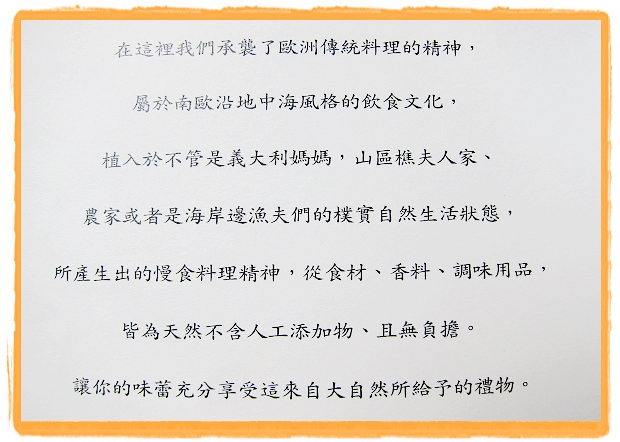 在這裡我們承襲了歐洲傳統料理的精神，
屬於南歐沿地中海風格的飲食文化，
植入於不管是義大利媽媽，山區樵夫人家、
農家或者是海岸邊漁夫們的樸實自然生活狀態，
所產生出的慢食料理精神，從食材、香料、調味用品，
皆為天然不含人工添加物、且無負擔。
讓你的味蕾充分享受這來自大自然所給予的禮物。